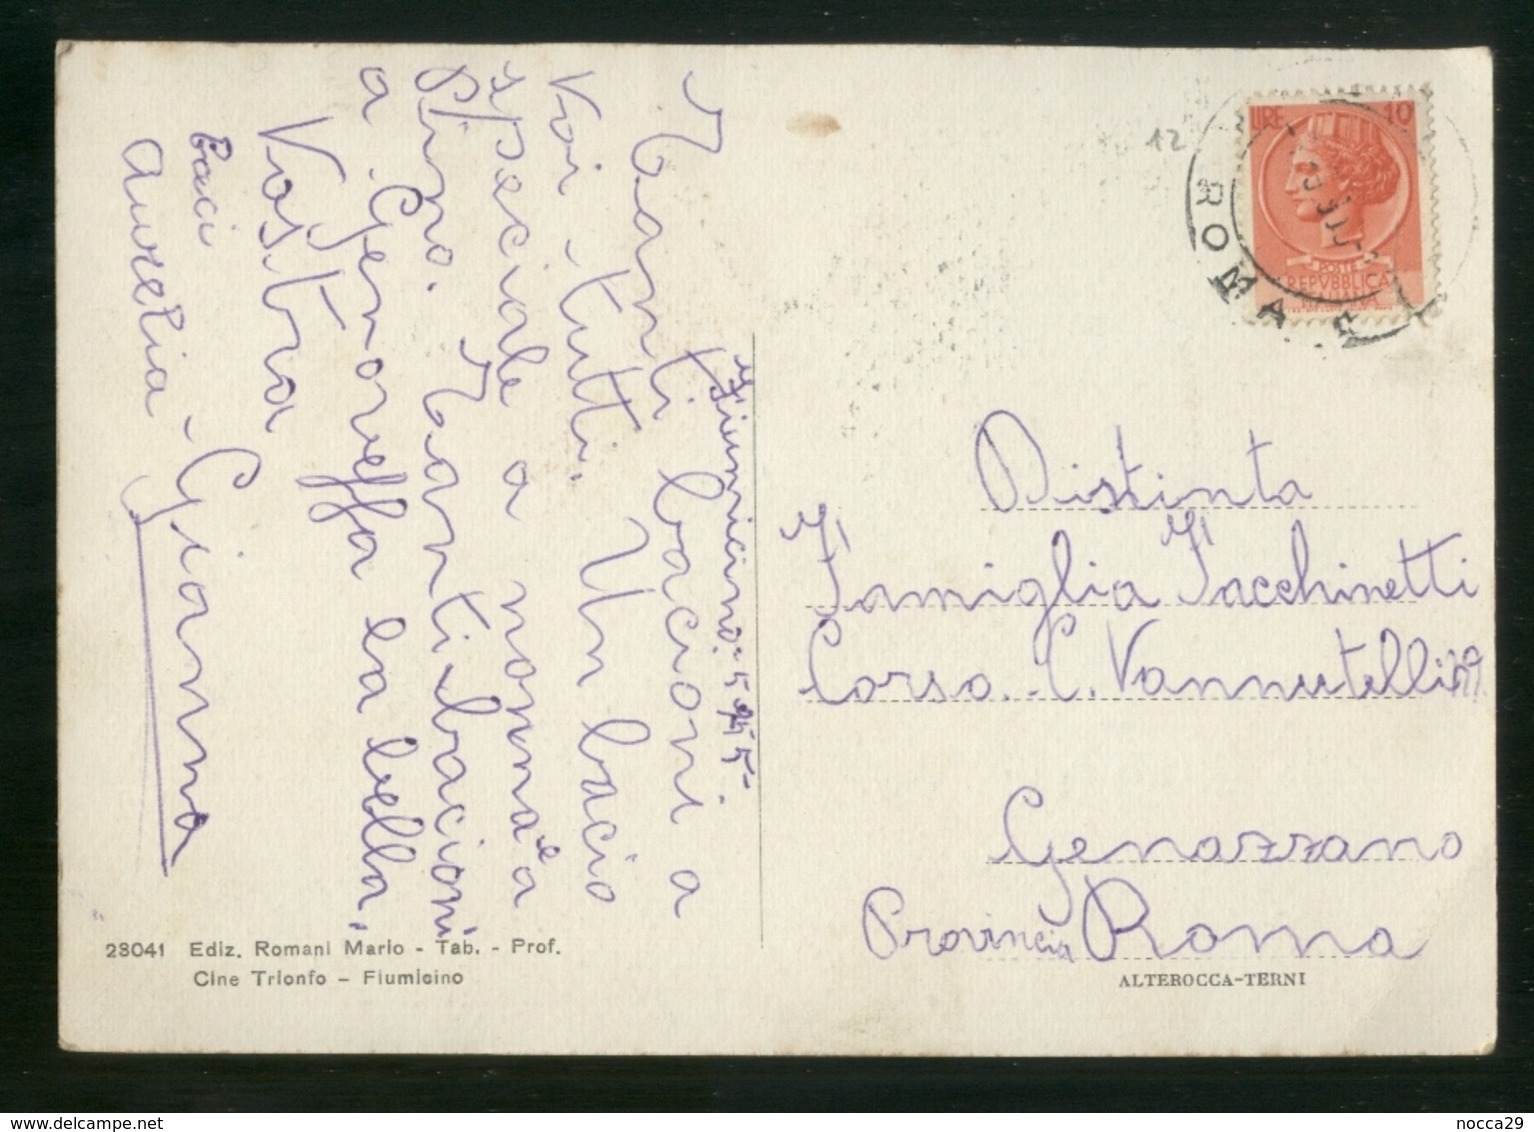 Fiumicino. 5 9 55
Tanti bacioni a
voi tutti. Un bacio
speciale a nonna e a
Pino. Tanti bacioni
a Genoveffa la bella,
Vostra
Gianna
baci
Aurelia
28041 Ediz. Romani Mario - Tab. - Prof.
Cine Trionfo - Fiumicino
12
LIRE 10
POSTE
REPVBBLICA
ITALIANA
ROMA
Distinta
Famiglia Facchinetti
Corso. C. Vannutelli
Genazzano
Provincia Roma
ALTEROCCA-TERNI
www.delcampe.net
nocca29